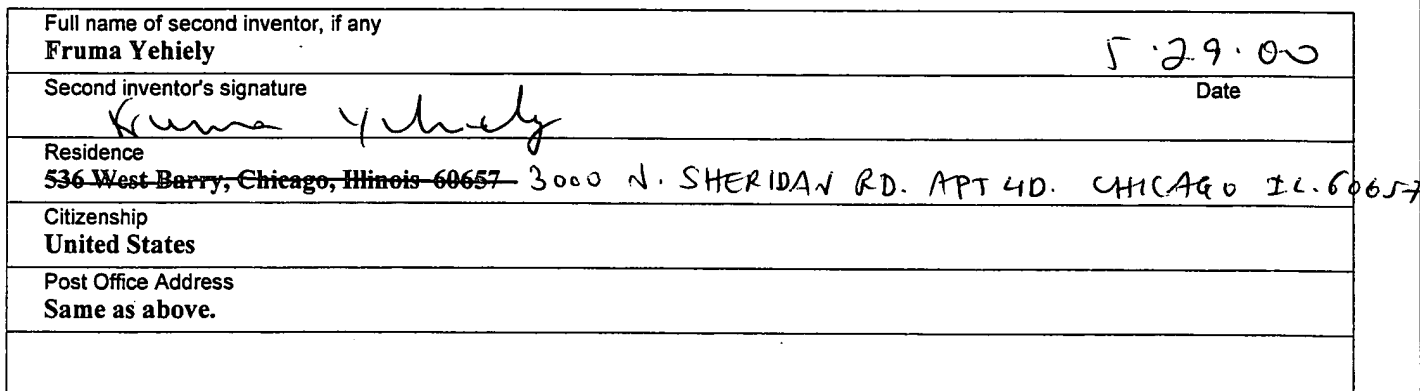 Full name of second inventor, if any
Fruma Yehiely 5.29.00
Second inventor's signature Date
Fruma Yehiely
Residence
536 West Barry, Chicago, Illinois 60657 3000 N. SHERIDAN RD. APT 4D. CHICAGO IL. 60657
Citizenship
United States
Post Office Address
Same as above.